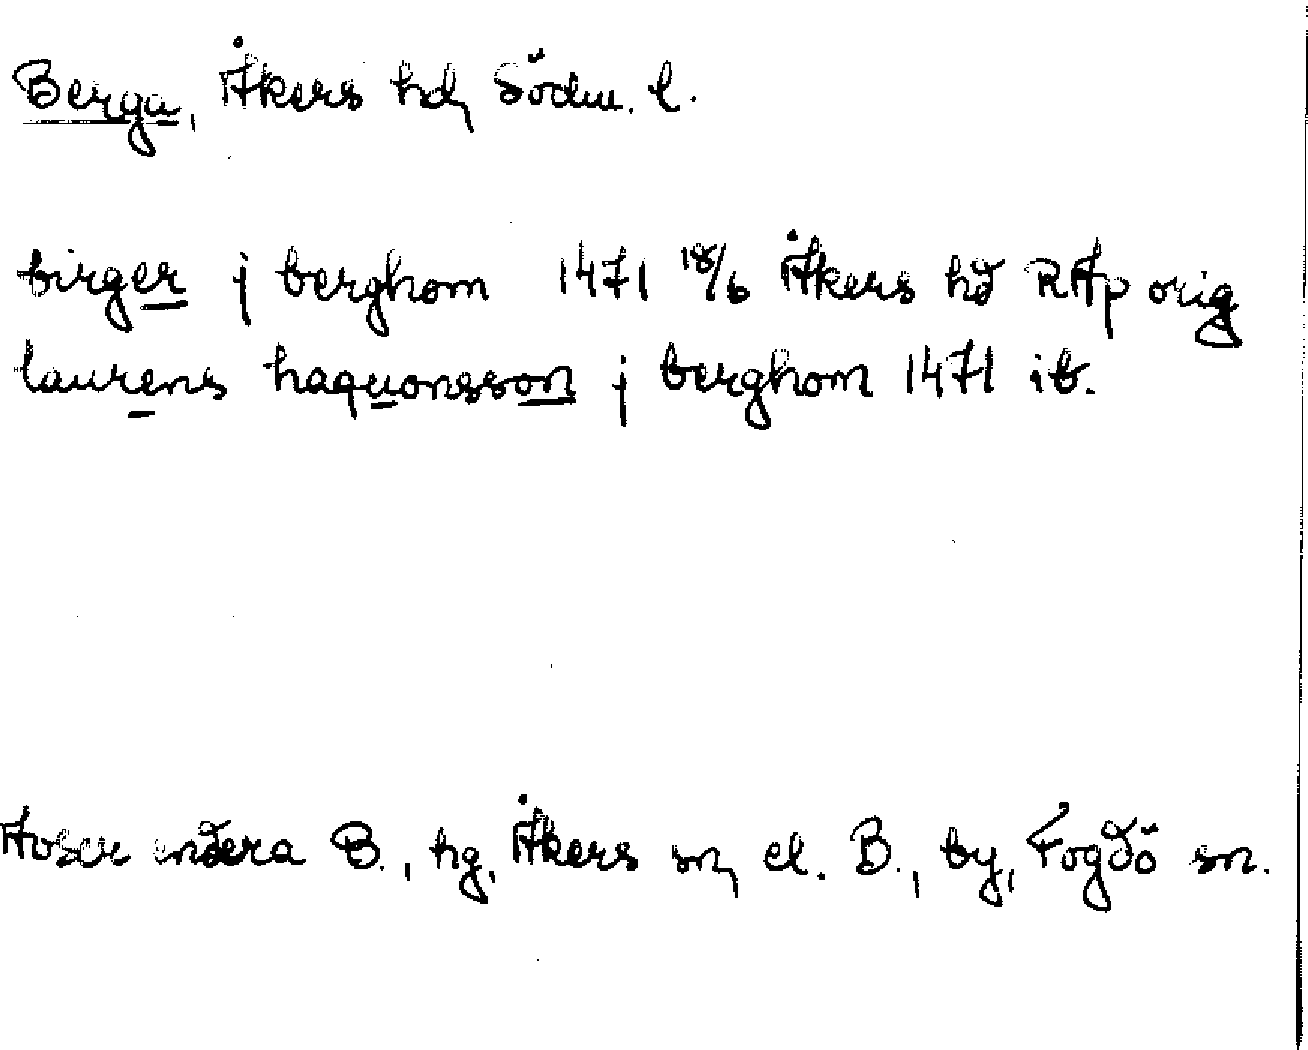 Berga, Åkers hd, Södm. l.
birger j berghom 1471 18/6 Åkers hd RAp orig
laurens haquonsson j berghom 1471 ib.
Avser endera B., hg, Åkers sn, el. B., by, Fogdö sn.